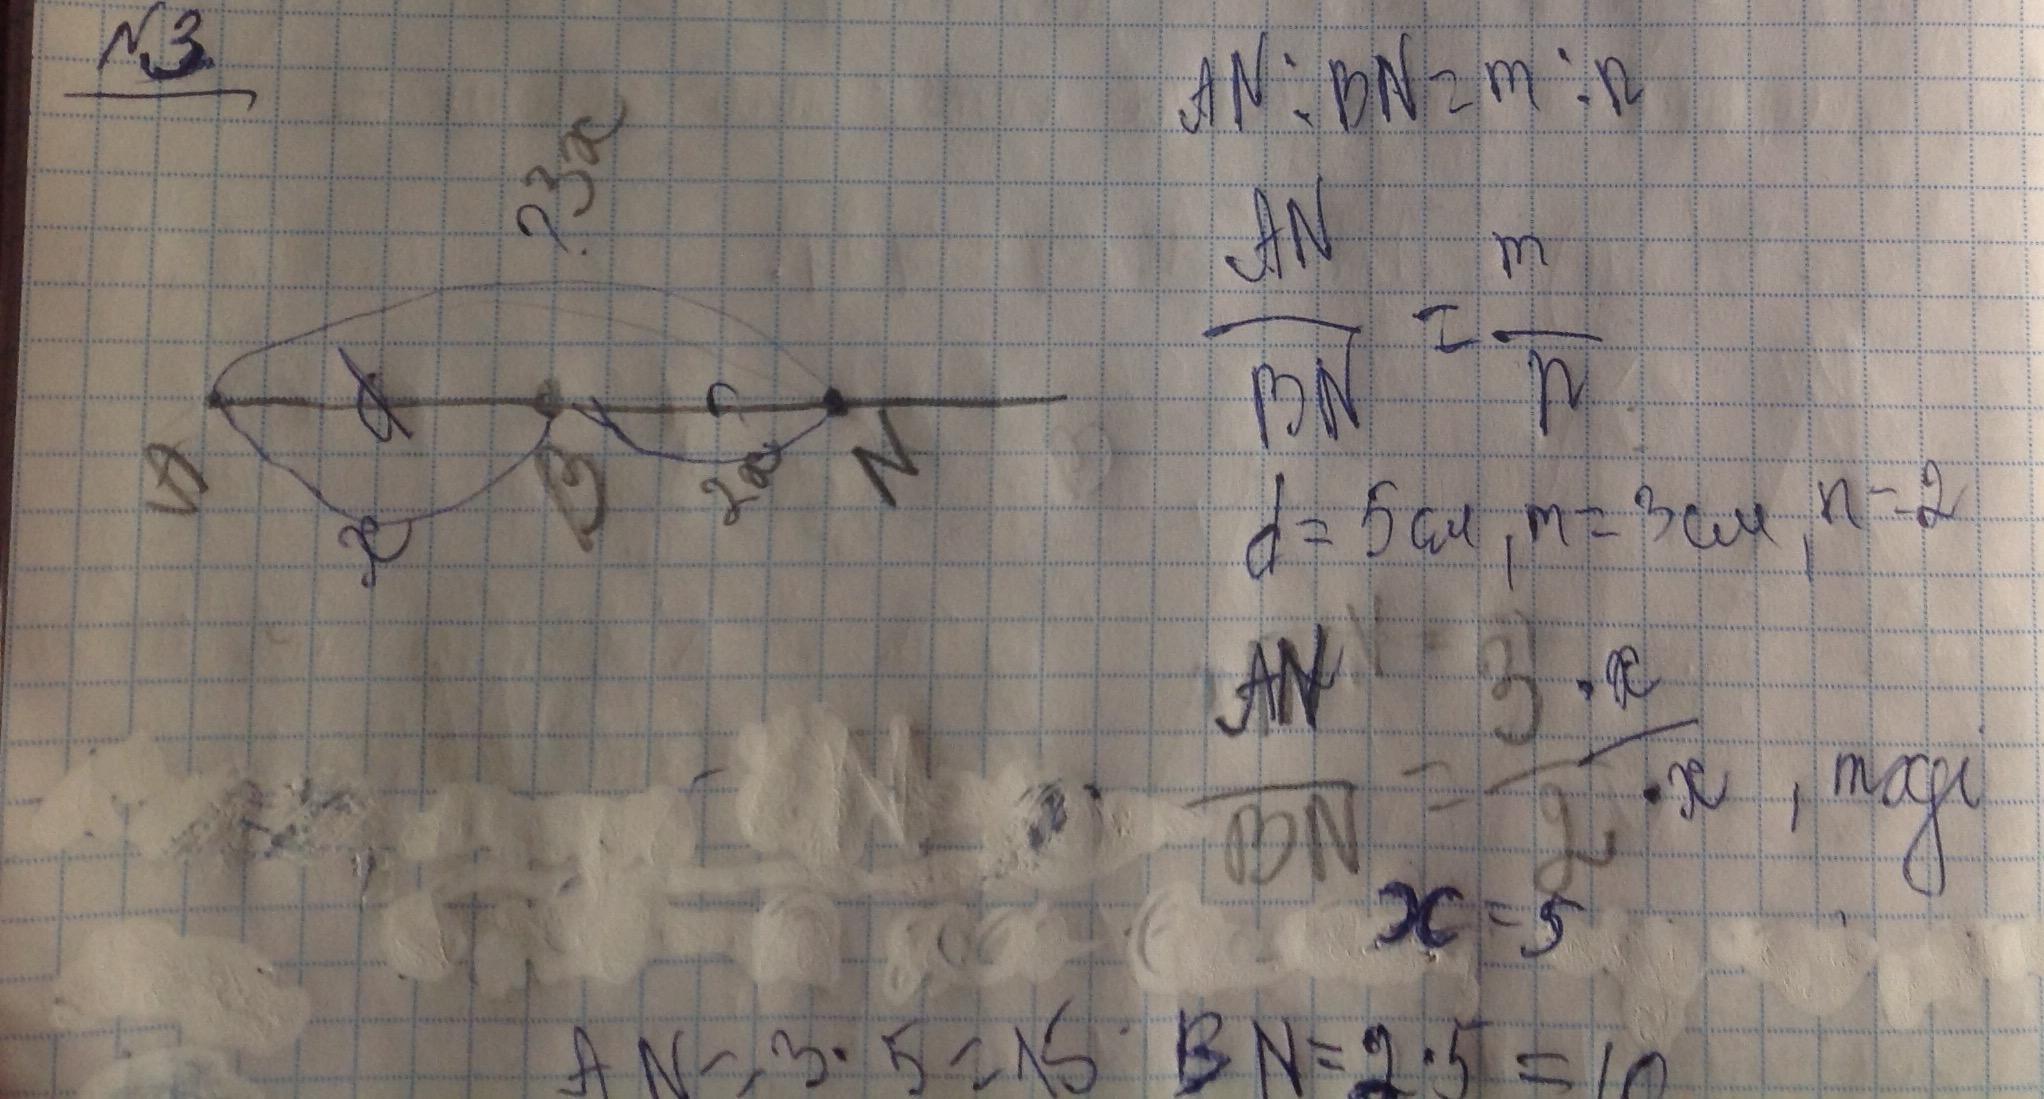 N3.
? 3x
d
A
x
B
2x
N
AN : BN = m : n
AN
BN
=
m
n
d = 5 см, m = 3 см, n = 2
AN
BN
=
3 · x
2 · x
, тоді
x = 5
AN = 3 · 5 = 15 BN = 2 · 5 = 10